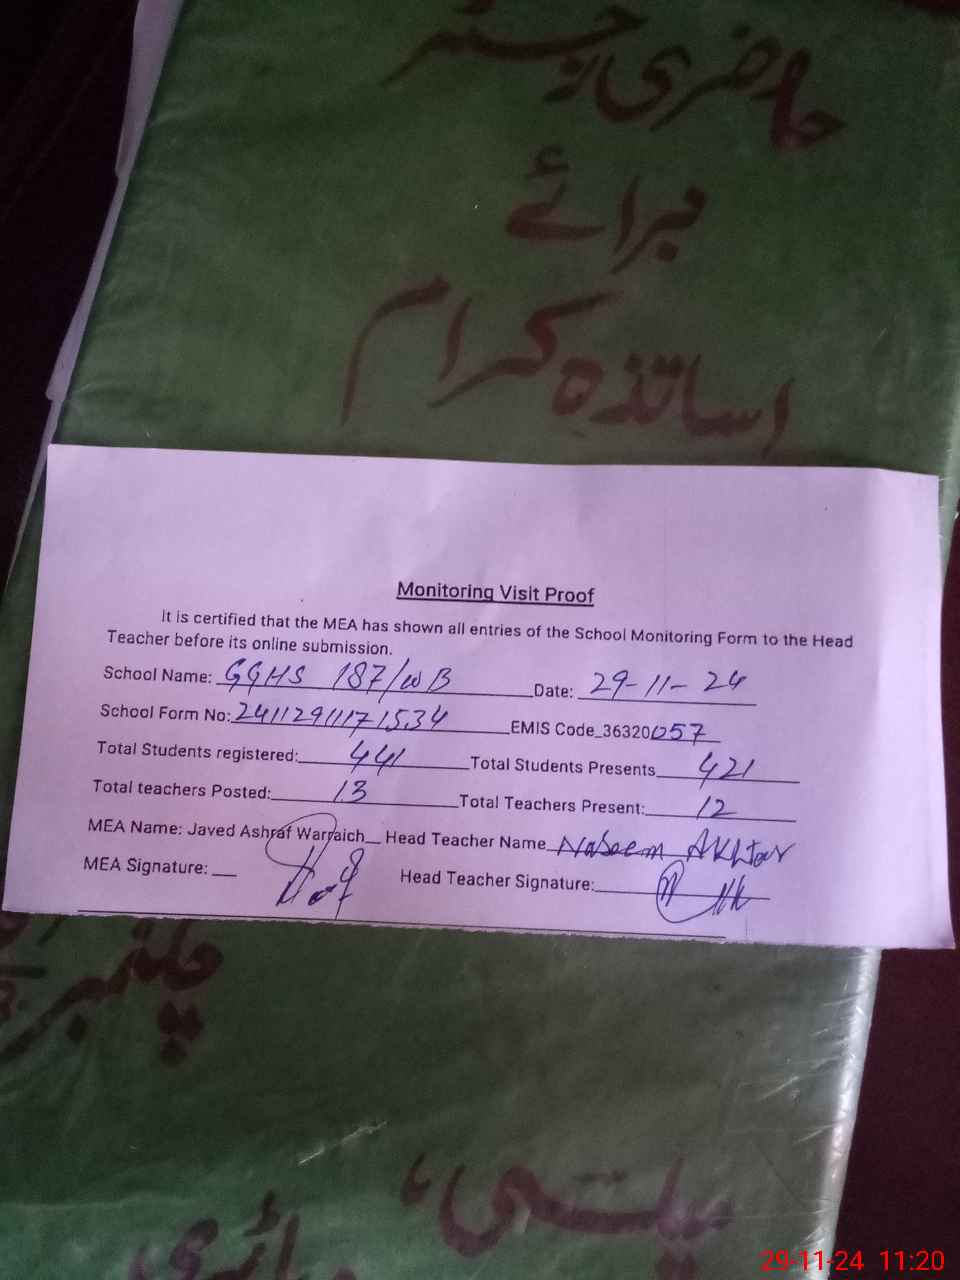 حاضری رجسٹر
برائے
اساتذہ کرام
Monitoring Visit Proof
It is certified that the MEA has shown all entries of the School Monitoring Form to the Head
Teacher before its online submission.
School Name: GGHS 187/WB Date: 29-11-24
School Form No: 24112911171534 EMIS Code_36320057
Total Students registered: 441 Total Students Presents 421
Total teachers Posted: 13 Total Teachers Present: 12
MEA Name: Javed Ashraf Warraich Head Teacher Name Naseem Akhtar
MEA Signature: Head Teacher Signature:
29-11-24 11:20